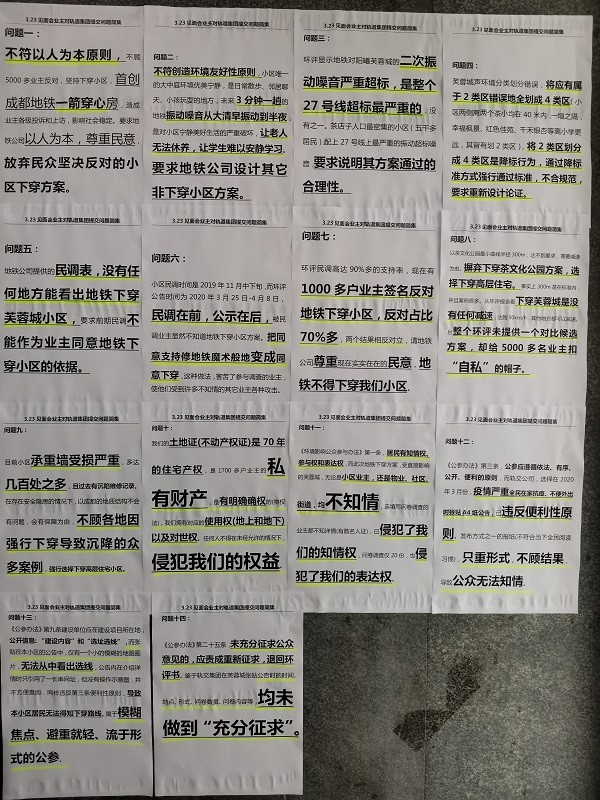 3.23 见面会业主对轨道集团提交问题简集
问题一：
不符以人为本原则，不顾
5000多业主反对，坚持下穿小区，首创
成都地铁一箭穿心房，造成
业主各级投诉和上访，影响社会稳定。要求地
铁公司以人为本，尊重民意，
放弃民众坚决反对的小
区下穿方案。
3.23 见面会业主对轨道集团提交问题简集
问题二：
不符创造环境友好性原则，小区唯一
的大中庭环境优美宁静，是日常散步、邻居聊
天、小孩玩耍的地方，未来3分钟一趟的
地铁振动噪音从大清早振动到半夜
是对小区宁静美好生活的严重破坏，让老人
无法休养，让学生难以安静学习。
要求地铁公司设计其它
非下穿小区方案。
3.23 见面会业主对轨道集团提交问题简集
问题三：
环评显示地铁对阳曦芙蓉城的二次振
动噪音严重超标，是整个
27号线超标最严重的，没
有之一。茶店子人口最密集的小区（五千多
居民）配上27号线上最严重的振动超标噪
音，要求说明其方案通过的
合理性。
3.23 见面会业主对轨道集团提交问题简集
问题四：
芙蓉城声环境分类划分错误，将应有属
于2类区错误地全划成4类区（小
区西侧离两个茶小均在40米内，一墙之隔；
幸福枫景、红色佳苑、干末银杏等离小学更
远，其皆有划2类区），将2类区划分
成4类区是降标行为，通过降标
准方式强行通过标准，不合规范，
要求重新设计论证。
3.23 见面会业主对轨道集团提交问题简集
问题五：
地铁公司提供的民调表，没有任
何地方能看出地铁下穿
芙蓉城小区，要求前期民调不
能作为业主同意地铁下
穿小区的依据。
3.23 见面会业主对轨道集团提交问题简集
问题六：
小区民调时间是2019年11月中下旬,而环评
公告时间为2020年3月25日-4月8日，
民调在前，公示在后，被民
调业主显然不知道地铁下穿小区方案。把同
意支持修地铁魔术般地变成同
意下穿,这种做法，害苦了参与调查的业主，
使他们受到许多不知情的其它业主各种攻击。
3.23 见面会业主对轨道集团提交问题简集
问题七：
环评民调高达90%多的支持率，现在有
1000多户业主签名反对
地铁下穿小区，反对占比
70%多，两个结果相反对立，请地铁
公司尊重现在实实在在的民意，地
铁不得下穿我们小区.
3.23 见面会业主对轨道集团提交问题简集
问题八：
以茶文化公园最小曲线半径300m，达不到要求，需要减速
为由，摒弃下穿茶文化公园方案，选
择下穿高层住宅。事实上300m是在标准内，
并且案例很多。从环评报告看下穿芙蓉城是没
有任何减速，
整个环评未提供一个对比候选
方案，却给5000多名业主扣
“自私”的帽子。
3.23 见面会业主对轨道集团提交问题简集
问题九：
目前小区承重墙受损严重，多达
几百处之多，且过去有沉陷维修记录，
在存在安全隐患的情况下，以成都的地质结构不会
有问题，会有保障为由，不顾各地因
强行下穿导致沉降的众
多案例，强行选择下穿高层住宅小区。
3.23 见面会业主对轨道集团提交问题简集
问题十：
我们的土地证(不动产权证)是70年
的住宅产权，是1700多户业主的私
有财产，是有明确确权的(物权
法)，我们拥有对应的使用权(地上和地下)
以及对世权，任何人不得在未经允许的情况下，
侵犯我们的权益
3.23 见面会业主对轨道集团提交问题简集
问题十一：
《环境影响公众参与办法》第一条，居民有知情权、
参与权和表达权，而此次地铁下穿方案，受直接影响
的芙蓉城，无论是小区业主，还是物业、社区、
街道，均不知情，去填问卷调查的
业主都不知详情(有数名人证)，已侵犯了我
们的知情权，问卷调查仅20份，也侵
犯了我们的表达权.
3.23 见面会业主对轨道集团提交问题简集
问题十二：
《公参办法》第三条，公参应遵循依法、有序、
公开、便利的原则，而轨交公司，选择在2020
年3月份，疫情严重全民在家抗疫、不便外出
时张贴A4纸公告，已违反便利性原
则，发布方式之一的报纸(不符合当下全民阅读
习惯)，只重形式，不顾结果，
导致公众无法知情.
3.23 见面会业主对轨道集团提交问题简集
问题十三：
《公参办法》第九条建设单位应在建设项目所在地，
公开信息：“建设内容”和“选址选线”，而张
贴在本小区的公告中，仅有一个小的模糊的地图图
片，无法从中看出选线，公告内在介绍详
情时只引用了一长串网址，但没有操作示意图，并
不方便查阅，同样违反第三条便利性原则，导致
本小区居民无法得知下穿路线，属于模糊
焦点、避重就轻、流于形
式的公参.
3.23 见面会业主对轨道集团提交问题简集
问题十四：
《公参办法》第二十五条 未充分征求公众
意见的，应责成重新征求，退回环
评书，鉴于轨交集团在芙蓉城张贴公告时的时间、
地点、形式，问卷数量，问卷内容等，均未
做到“充分征求”。